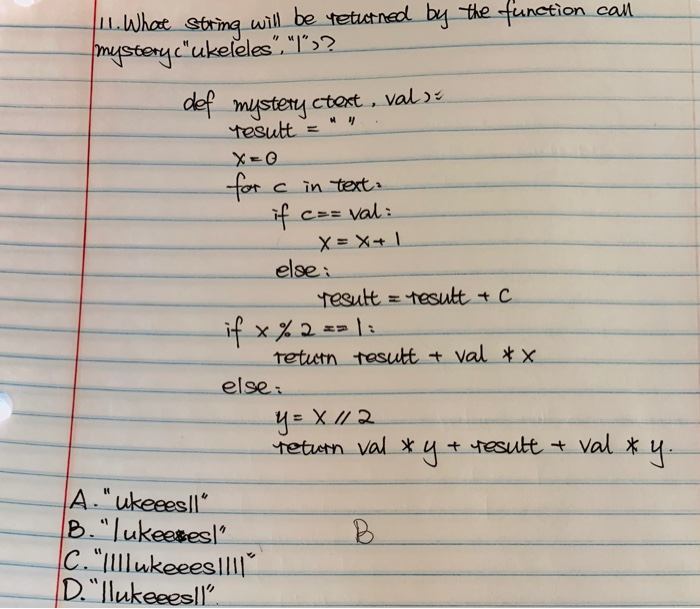 11. What string will be returned by the function call
mystery("ukeleles", "l")?
def mystery(text, val):
result = " "
x=0
for c in text:
if c== val:
x = x+1
else:
result = result + c
if x % 2 == 1:
return result + val * x
else:
y = x // 2
return val * y + result + val * y.
A. "ukeeesll"
B. "lukeeesl"
B
C. "llllukeeesllll"
D. "llukeeesll"